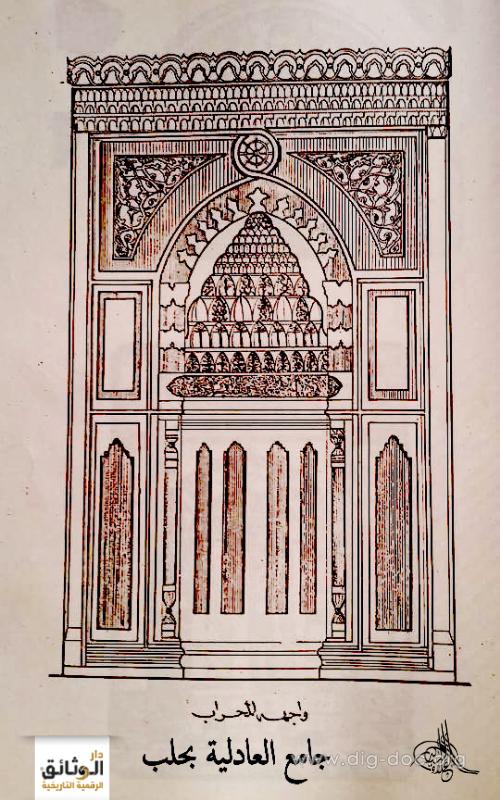 واجهة المحراب
جامع العادلية بحلب
www.dig-doc.org
دار
الوثائق
الرقمية التاريخية